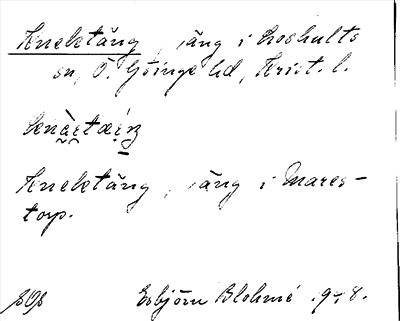 Knektäng, äng i Loshults
sn, Ö. Göinge hd, Krist. l.
Knektäng, äng i Mares-
torp.
Esbjörn Blohmé